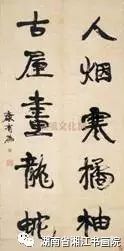 人烟寒橘柚
古屋画龙蛇
康有為
湖南省湘江书画院